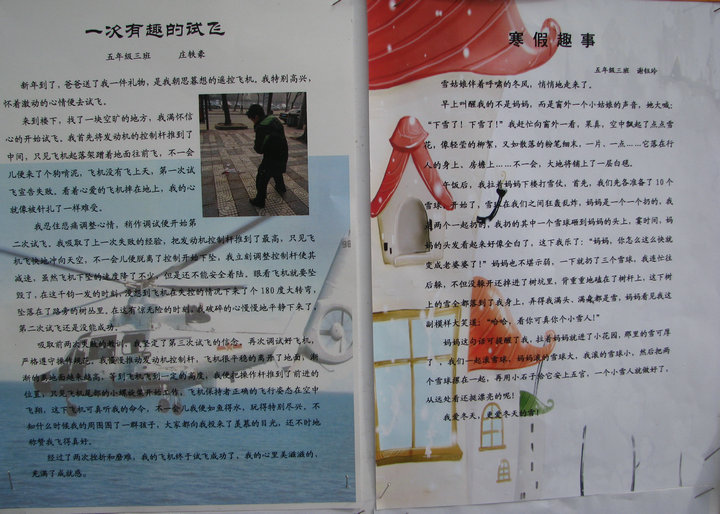 一次有趣的试飞
五年级三班 庄轶豪
新年到了，爸爸送了我一件礼物，是我朝思暮想的遥控飞机。我特别高兴，
怀着激动的心情便去试飞。
来到楼下，找了一块空旷的地方，我满怀信
心的开始试飞。我首先将发动机的控制杆推到了
中间，只见飞机起落架蹭着地面往前飞，不一会
儿便来了个狗啃泥，飞机没有飞上天，第一次试
飞宣告失败。看着心爱的飞机摔在地上，我的心
就像被针扎了一样难受。
我忍住悲痛调整心情，稍作调试便开始第
二次试飞，我吸取了上一次失败的经验，把发动机控制杆推到了最高，只见飞
机飞快地冲向天空，不一会儿便脱离了控制开始下坠，我立刻调整控制杆使其
减速，虽然飞机下坠的速度降了不少，但是还不能安全着陆。眼看飞机就要坠
毁了，在这千钧一发的时刻，没想到飞机在失控的情况下来了个180度大转弯，
坠落在了路旁的树丛里。在这有惊无险的时刻，我破碎的心慢慢地平静下来了，
第二次试飞还是没能成功。
吸取前两次失败的教训，我坚定了第三次试飞的信念，再次调试好飞机，
严格遵守操作规范，我慢慢推动发动机控制杆，飞机很平稳的离开了地面，渐
渐的离地面越来越高，等到飞机飞到一定的高度，我便把操作杆推到了前进的
位置，只见飞机尾部的小螺旋桨开始工作，飞机保持着正确的飞行姿态在空中
飞翔，这下飞机可真听我的命令，不一会儿我便如鱼得水，玩得特别尽兴，不
知什么时候我的周围围了一群孩子，大家都向我投来了羡慕的目光，还不时地
称赞我飞得真好。
经过了两次挫折和磨难，我的飞机终于试飞成功了，我的心里美滋滋的，
充满了成就感。
寒假趣事
五年级三班 谢钰玲
雪姑娘伴着呼啸的冬风，悄悄地走来了。
早上叫醒我的不是妈妈，而是窗外一个小姑娘的声音，她大喊：
“下雪了！下雪了！”我赶忙向窗外一看，果真，空中飘起了点点雪
花，像轻莹的柳絮，又如散落的粉笔细末，一片，一点……它落在行
人的身上、房檐上……不一会，大地将铺上了一层白毯。
午饭后，我拉着妈妈下楼打雪仗，首先，我们先各准备了10个
雪球，开始了，雪球在我们之间狂轰乱炸，妈妈是一个一个的扔，我
是两个一起扔的，我扔的其中一个雪球砸到妈妈的头上，霎时间，妈
妈的头发看起来好像全白了，这下我乐了：“妈妈，你怎么这么快就
变成老婆婆了！”妈妈也不堪示弱，一下就扔了三个雪球，我连忙往
后躲，不但没躲开还掉进了树坑里，背重重地磕在了树杆上，这下树
上的雪全都落到了我身上，弄得我满头，满身都是雪，妈妈看见我这
副模样大笑道：“哈哈，看你可真你个小雪人！”
妈妈这句话可提醒了我，拉着妈妈就进了小花园，那里的雪可厚
了，我们一起滚雪球，妈妈滚的雪球大，我滚的雪球小，然后把两
个雪球摆在一起，再用小石子给它安上五官，一个小雪人就做好了，
从远处看还挺漂亮的呢！
我爱冬天，更爱冬天的雪！